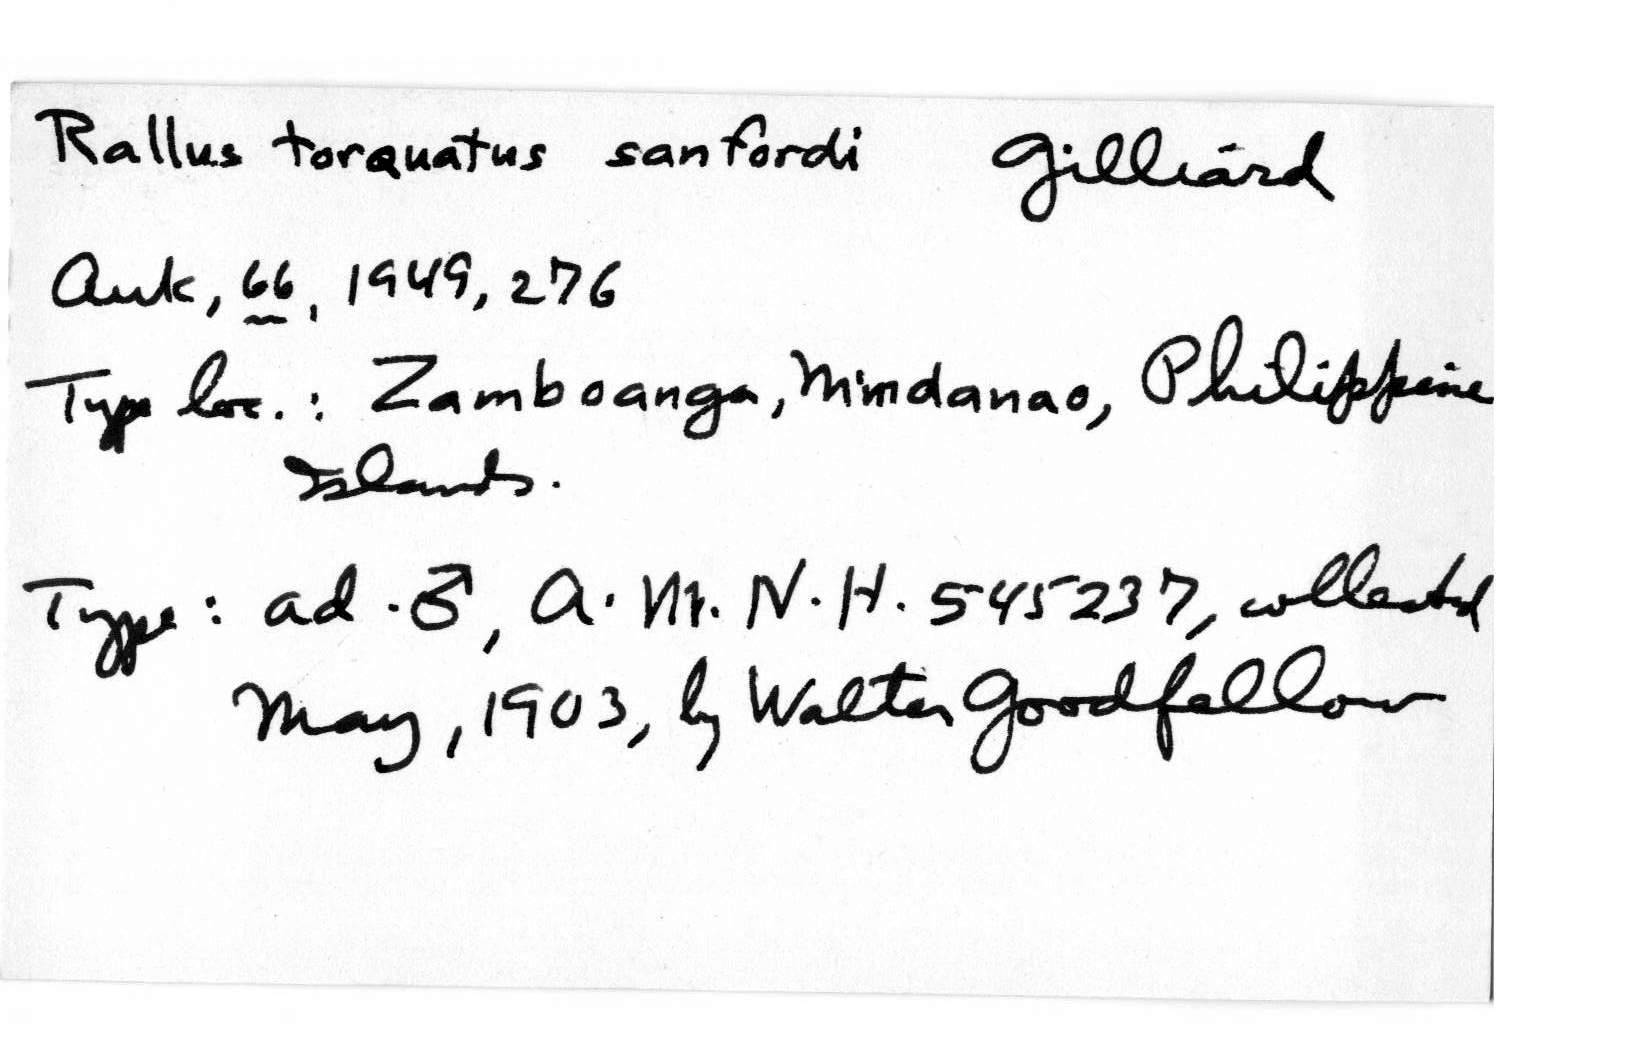 Rallus torquatus sanfordi Gilliard
Auk, 66, 1949, 276
Type loc.: Zamboanga, Mindanao, Philippine
Islands.
Type: ad. ♂, A.M.N.H. 545237, collected
May, 1903, by Walter Goodfellow